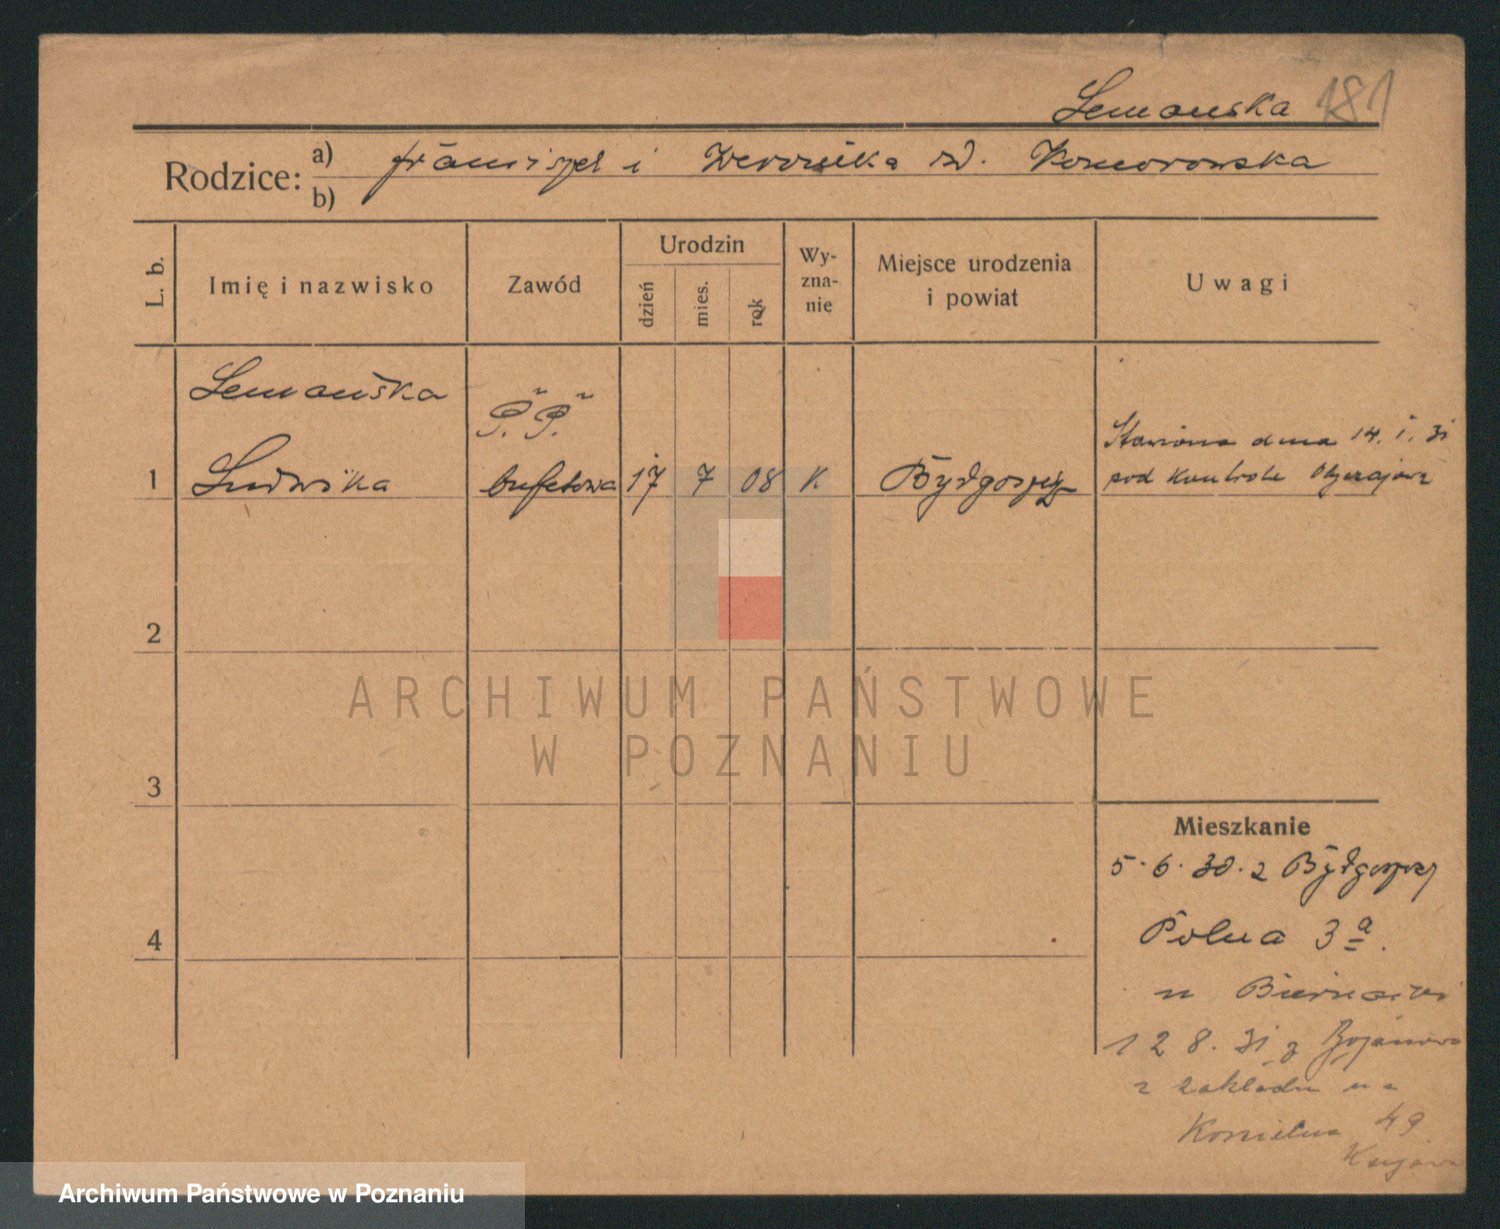 Lemańska 181
Rodzice:
a) Franciszek i Weronika zd. Komorowska
b)
L. b.
Imię i nazwisko
Zawód
Urodzin
dzień
mies.
rok
Wy-
zna-
nie
Miejsce urodzenia
i powiat
Uwagi
Lemańska
P. P.
Stawiona dnia 14. 1. 31
1 Ludwika bufetowa 17 7 08 K. Bydgoszcz pod kontrole
2
ARCHIWUM PAŃSTWOWE
W POZNANIU
3
Mieszkanie
5. 6. 30. z Bydgoszczy
4
Polna 3a.
u
12 8. 31 z Bojanowa
z zakładu na
49
Archiwum Państwowe w Poznaniu